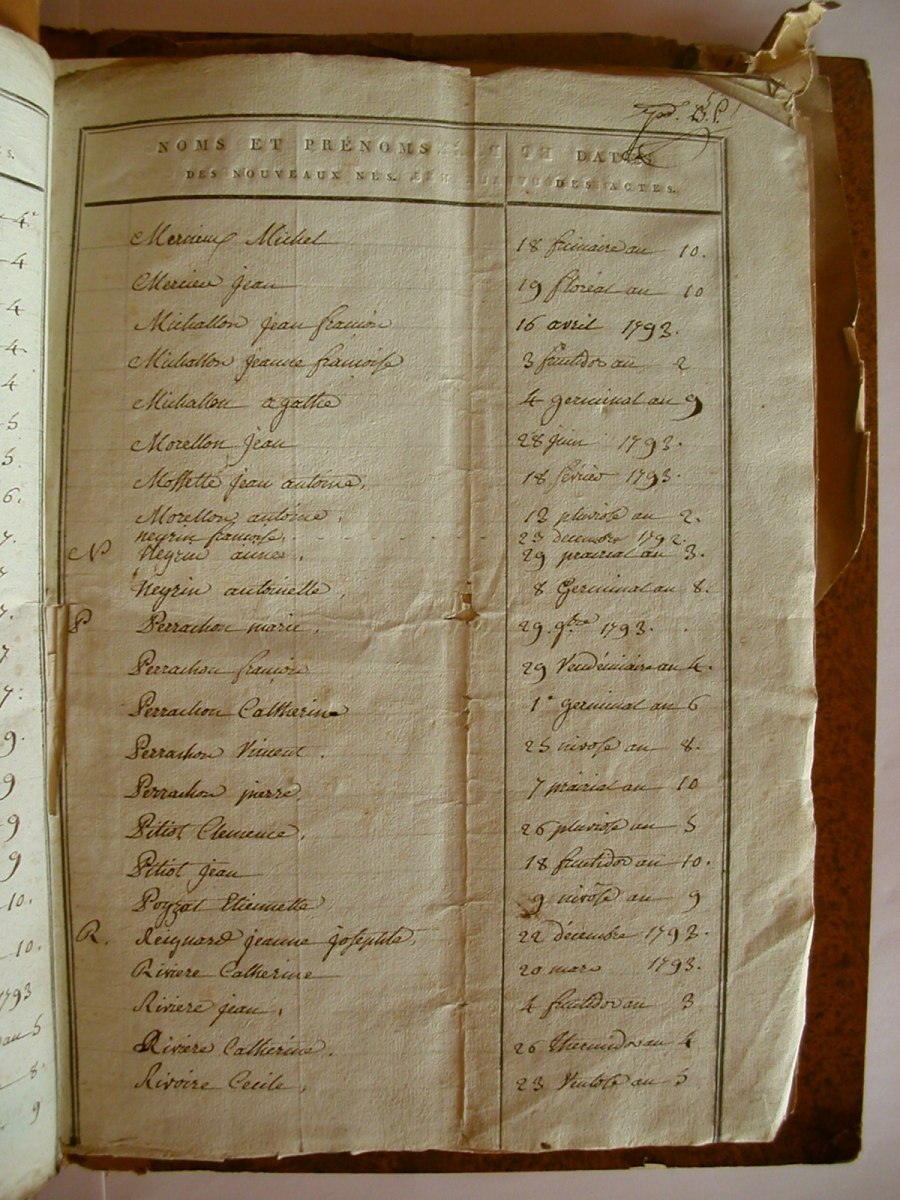 NOMS ET PRÉNOMS DATES
DES NOUVEAUX NÉS. DES ACTES.
Mercieux Michel 18 frimaire an 10.
Mercieu jean 19 floréal an 10
Michallon jean françois 16 avril 1793.
Michallon jeanne françoise 3 fructidor an 2
Michallon agathe 4 germinal an 9
Morellon jean 28 juin 1793.
Moffette jean antoine. 18 février 1793
Morellon antoine. 12 pluviose an 2.
neyrin françoise. 23 décembre 1792.
N Neyrin annes. 29 prairial an 3.
Neyrin antoinette. 8 Germinal an 8.
P Perrachon marie. 29. 9bre 1793.
Perrachon françois 29 Vendémiaire an 4.
Perrachon Catherine 1er germinal an 6
Perrachon Vincent. 25 nivose an 8.
Perrachon pierre. 7 prairial an 10
Pitiot Clemence. 26 pluviose an 5
Pitiot jean 18 fructidor an 10.
Poyzat Etiennette 9 nivôse an 9
R. Reignard jeanne josephte. 22 décembre 1792.
Riviere Catherine 20 mars 1793.
Riviere jean. 4 fructidor an 3
Riviere Catherine. 26 thermidor an 4
Rivoire Cecile. 23 Ventose an 5
4
4
4
4
4
5
5.
6.
7.
7
7.
7.
7
7.
9.
9
9
9
10.
10.
1793
an 5
8
9